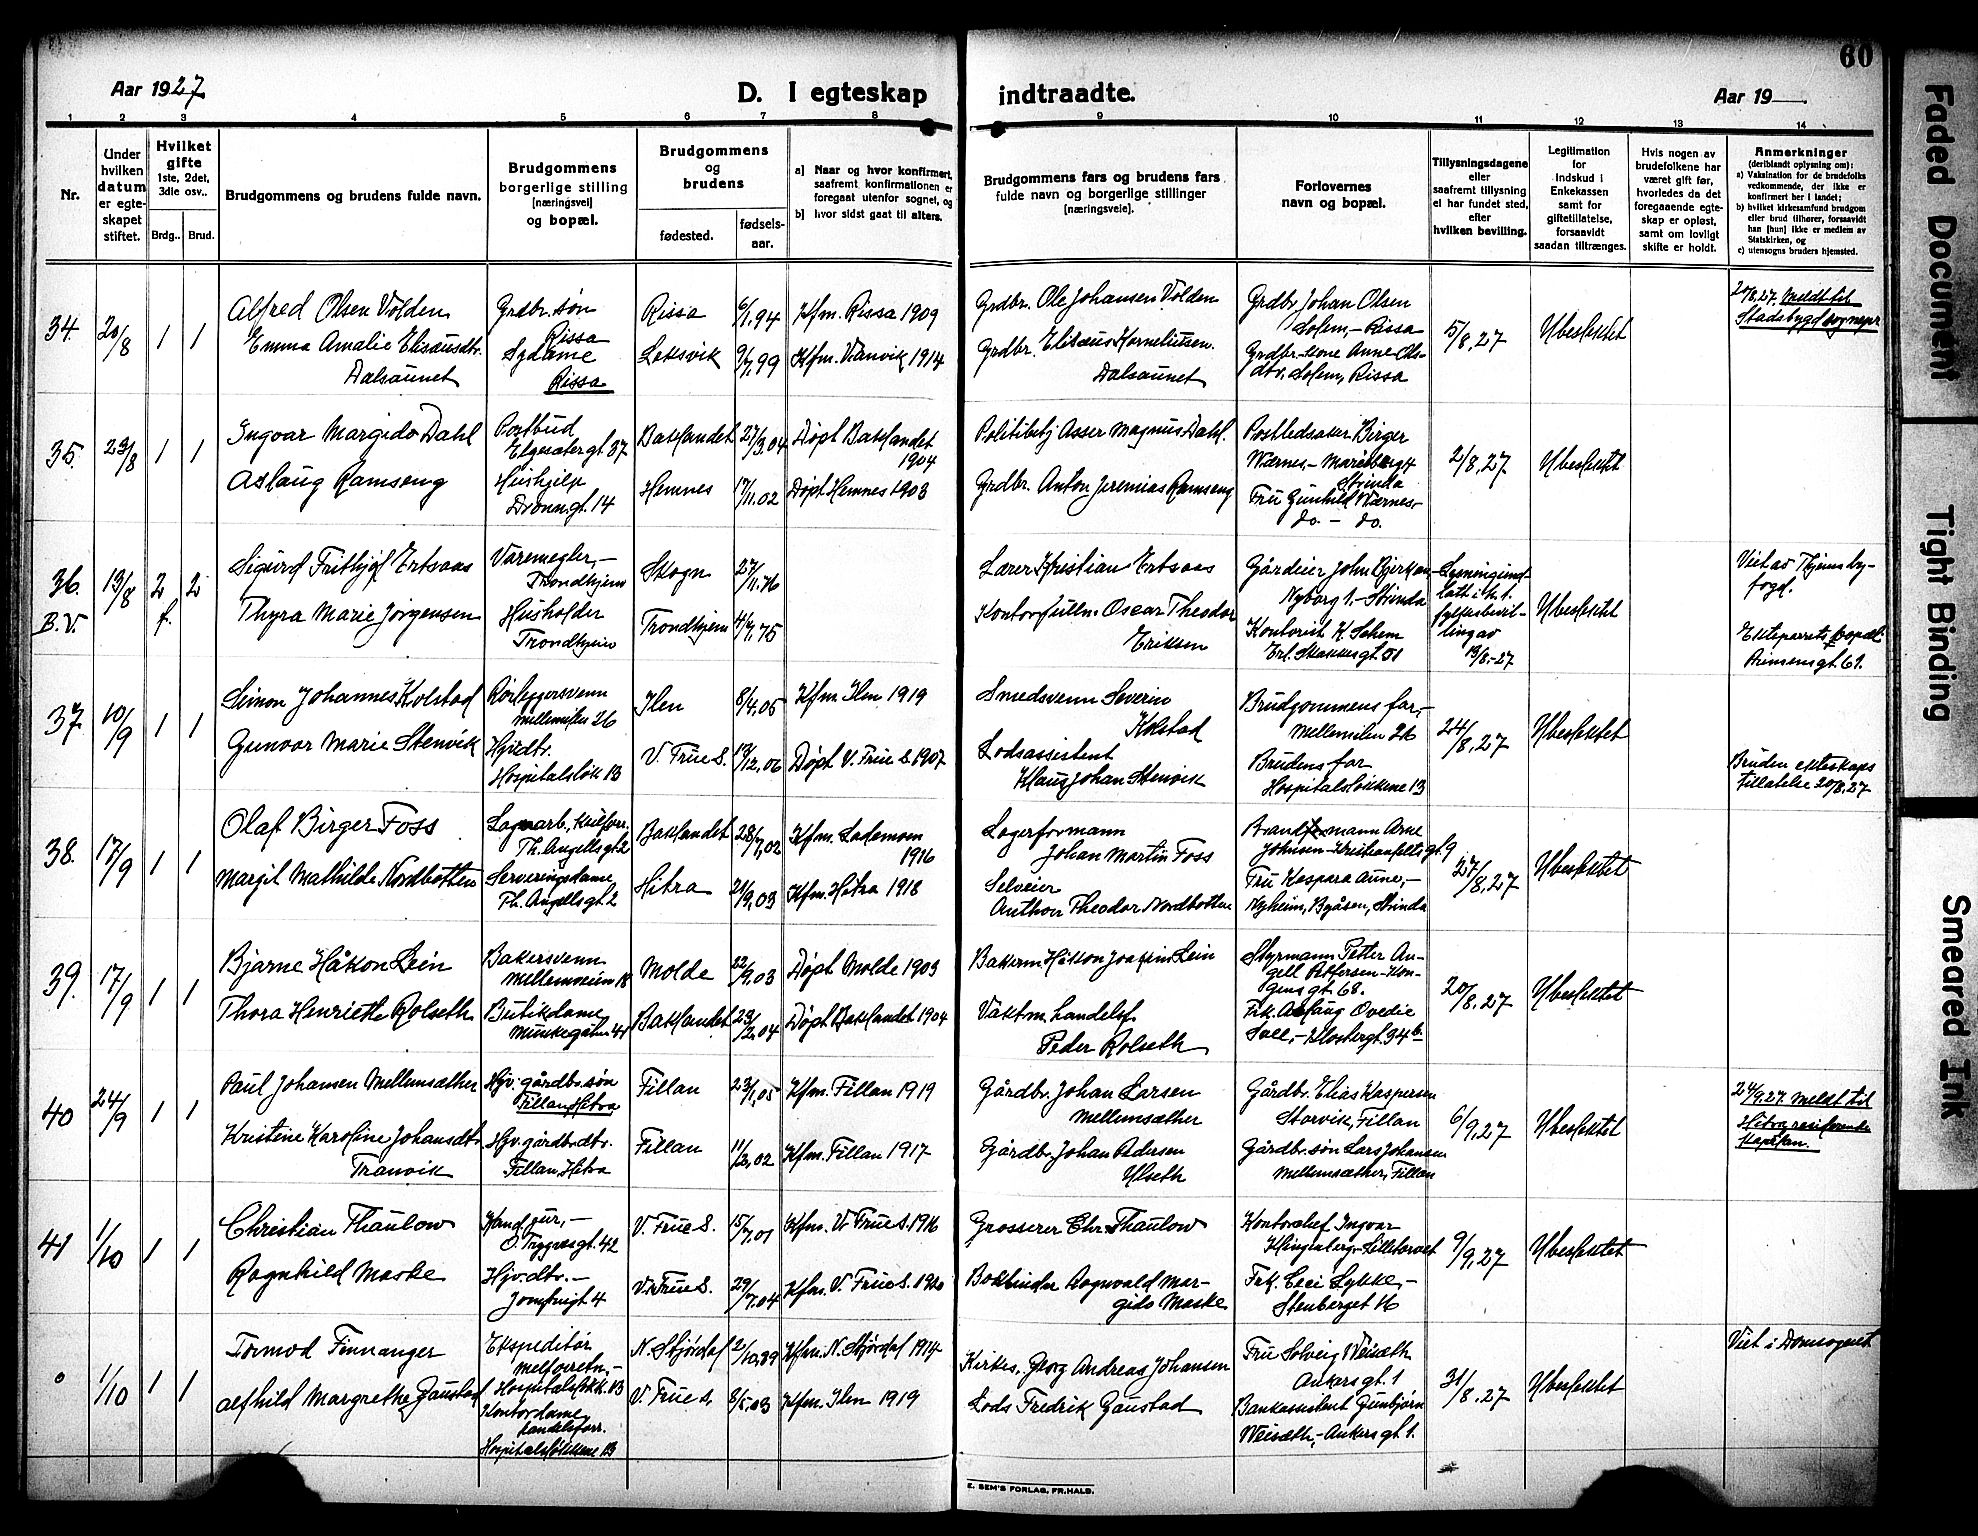 60
Aar 1927
D. I egteskap indtraadte.
Aar 19
Faded Document
Tight Binding
Smeared Ink
1 2 3 4 5 6 7 8 9 10 11 12 13 14
Nr.
Under hvilken datum er egteskapet stiftet.
Hvilket gifte
1ste, 2det, 3die osv..
Brdg.. Brud.
Brudgommens og brudens fulde navn.
Brudgommens borgerlige stilling (næringsvei) og bopæl.
Brudgommens og brudens
fødested. fødselsaar.
a) Naar og hvor konfirmert, saafremt konfirmationen er foregaat utenfor sognet, og
b) hvor sidst gaat til alters.
Brudgommens fars og brudens fars fulde navn og borgerlige stillinger (næringsveie).
Forlovernes navn og bopæl.
Tillysningsdagene eller saafremt tillysning ei har fundet sted, efter hvilken bevilling.
Legitimation for indskud i Enkekassen samt for giftetillatelse, forsaavidt saadan tiltrænges.
Hvis nogen av brudefolkene har været gift før, hvorledes da det foregaaende egteskap er opløst, samt om lovligt skifte er holdt.
Anmerkninger
(deriblandt oplysning om):
a) Vaksination for de brudefolks vedkommende, der ikke er konfirmert her i landet;
b) hvilket kirkesamfund brudgom eller brud tilhører, forsaavidt han [hun] ikke er medlem av Statskirken, og
c) utensogns bruders hjemsted.
34. 20/8 1 1
Alfred Olsen Volden
Emma Amalie Elisæusdtr. Dalsaunet
Grdbr. søn
Rissa
Sydame
Rissa
Rissa 6/1.94 Kfm. Rissa 1909
Leksvik 9/6.99 Kfm. Vanvik 1914
Grdbr. Ole Johansen Volden
Grdbr. Elisæus Korneliussen Dalsaunet
Grdbr. Johan Olsen
Solem, - Rissa
Grdbr.kone Anne Olsdtr. Solem, Rissa
5/8.27 Ubeslektet
20/8.27. Meldt til
Stadsbygd sognepr
35. 23/8 1 1
Ingvar Margido Dahl
Aslaug Ramseng
Postbud
Elgesætergt. 37
Hushjelp
Dronn.gt. 14
Baklandet 27/3.04 Døpt Baklandet 1904
Hemnes 17/11.02 Døpt Hemnes 1903
Politibetj Asser Magnus Dahl.
Grdbr. Anton Jeremias Ramseng
Postledsaker Birger
Wærnes, - Marieborg 4
Strinda
Fru Gunhild Wærnes,
do. - do.
2/8.27 Ubeslektet
36. B.V. 13/8 2 f. 2
Sigurd Frithjof Ertsaas
Thyra Marie Jørgensen
Varemegler, -
Trondhjem
Husholder
Trondhjem
Skogn 27/11.76
Trondhjem 4/7.75
Lærer Kristian Ertsaas
Kontorfullm. Oscar Theodor Eriksen
Gårdeier John Bjerkan
Nyborg 1. - Strinda
Kontorist K. Schem
Erl. Skakkesgt. 51
fylkesbevilling av
13/8.-27
Ubeslektet
Viet av Thjems byfogd.
Ekteparrets bopæl:
Prinsensgt. 61.
37. 10/9 1 1
Simon Johannes Kolstad
Gunvor Marie Stenvik
Rørleggersvenn
Mellemilen 26
Hjv.dtr.
Hospitalsløk 13
Ilen 8/4.05 Kfm. Ilen 1919
V. Frue S. 13/12.06 Døpt V. Frue S. 1907
Smedsvenn Severin Kolstad
Lodsassistent
Klaus Johan Stenvik
Brudgommens far, -
Mellemilen 26
Brudens far
Hospitalsløkkene 13
24/8.27 Ubeslektet
Bruden ekteskaps
tillatelse 20/8.27
38. 17/9 1 1
Olaf Birger Foss
Margit Mathilde Nordbotten
Th. Angellsgt. 2
Serveringsdame
Th. Angellsgt. 2
Baklandet 28/7.02 Kfm. Lademoen 1916
Hitra 21/9.03 Kfm. Hitra 1918
Lagerformann
Johan Martin Foss
Selveier
Anthon Theodor Nordbotten
Brandformann Arne
Johnsen - Kristianfeldtsgt. 9
Fru Kaspara Aune, -
Nyheim, Byåsen, Strinda
27/8.27 Ubeslektet
39. 17/9 1 1
Bjarne Håkon Lein
Thora Henriette Rolseth
Bakersvenn
Mellemveien 18
Butikdame
Munkegaten 41
Molde 22/9.03 Døpt Molde 1903
Baklandet 23/2.04 Døpt Baklandet 1904
Bakerm Håkon Joakim Lein
Vaktm. handelsf.
Peder Rolseth
Styrmann Petter Angell Pettersen - Kongensgt. 68.
Frk. Aslaug Ovedie
- Klostergt. 34 b
20/8.27 Ubeslektet
40 24/9 1 1
Paul Johansen Mellemsæther
Kristine Karoline Johansdtr. Tranvik
Hjv. gårdbr.søn
Fillan, Hitra
Hjv. gårdbr.dtr.
Fillan, Hitra
Fillan 23/1.05 Kfm. Fillan 1919
Fillan 11/2.02 Kfm. Fillan 1917
Gårdbr. Johan Larsen
Mellemsæther
Gårdbr. Johan Pedersen
Ulseth
Gårdbr. Elias Kaspersen
Storvik, Fillan
Gårdbr. søn Lars Johansen
Mellemsæther, Fillan
6/9.27 Ubeslektet
24/9.27. Meldt til
Hitra residerende
kapellan.
41 1/10 1 1
Christian Thaulow
Ragnhild Moske
Kand. jur, -
O. Tryggvesgt. 42
Hjv.dtr. -
Jomfrugt 4
V. Frue S. 15/7.01 Kfm. V. Frue S. 1916
V. Frue S. 29/7.04 Kfm. V. Frue S. 1920
Grosserer Chr. Thaulow
Bokbinder Rognvald Margido Moske
Kontorchef Ingvar
Klingenberg - Lilletorvet
Frk. Ceci Lykke, -
Stenberget 16
9/9.27 Ubeslektet
0 1/10 1 1
Tormod Finnanger
Alfhild Margrethe Gaustad
Ekspeditør
Hospitalsløkk. 13
Kontordame
handelsforr.
Hospitalsløkkene 13
N. Stjørdal 2/10.89 Kfm. N. Stjørdal 1914
V. Frue S. 8/5.03 Kfm. Ilen 1919
Kirkes. Georg Andreas Johansen
Lods Fredrik Gaustad
Fru Solveig Weiseth
Ankersgt. 1
Bankassistent Gunbjørn
Weiseth, - Ankersgt. 1.
31/8.27 Ubeslektet
Viet i Domsognet
E. SEM'S FORLAG, FR.HALD.